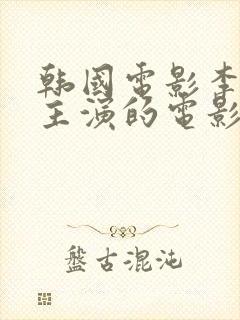 韩國電影李
主演的電影
盤古混沌